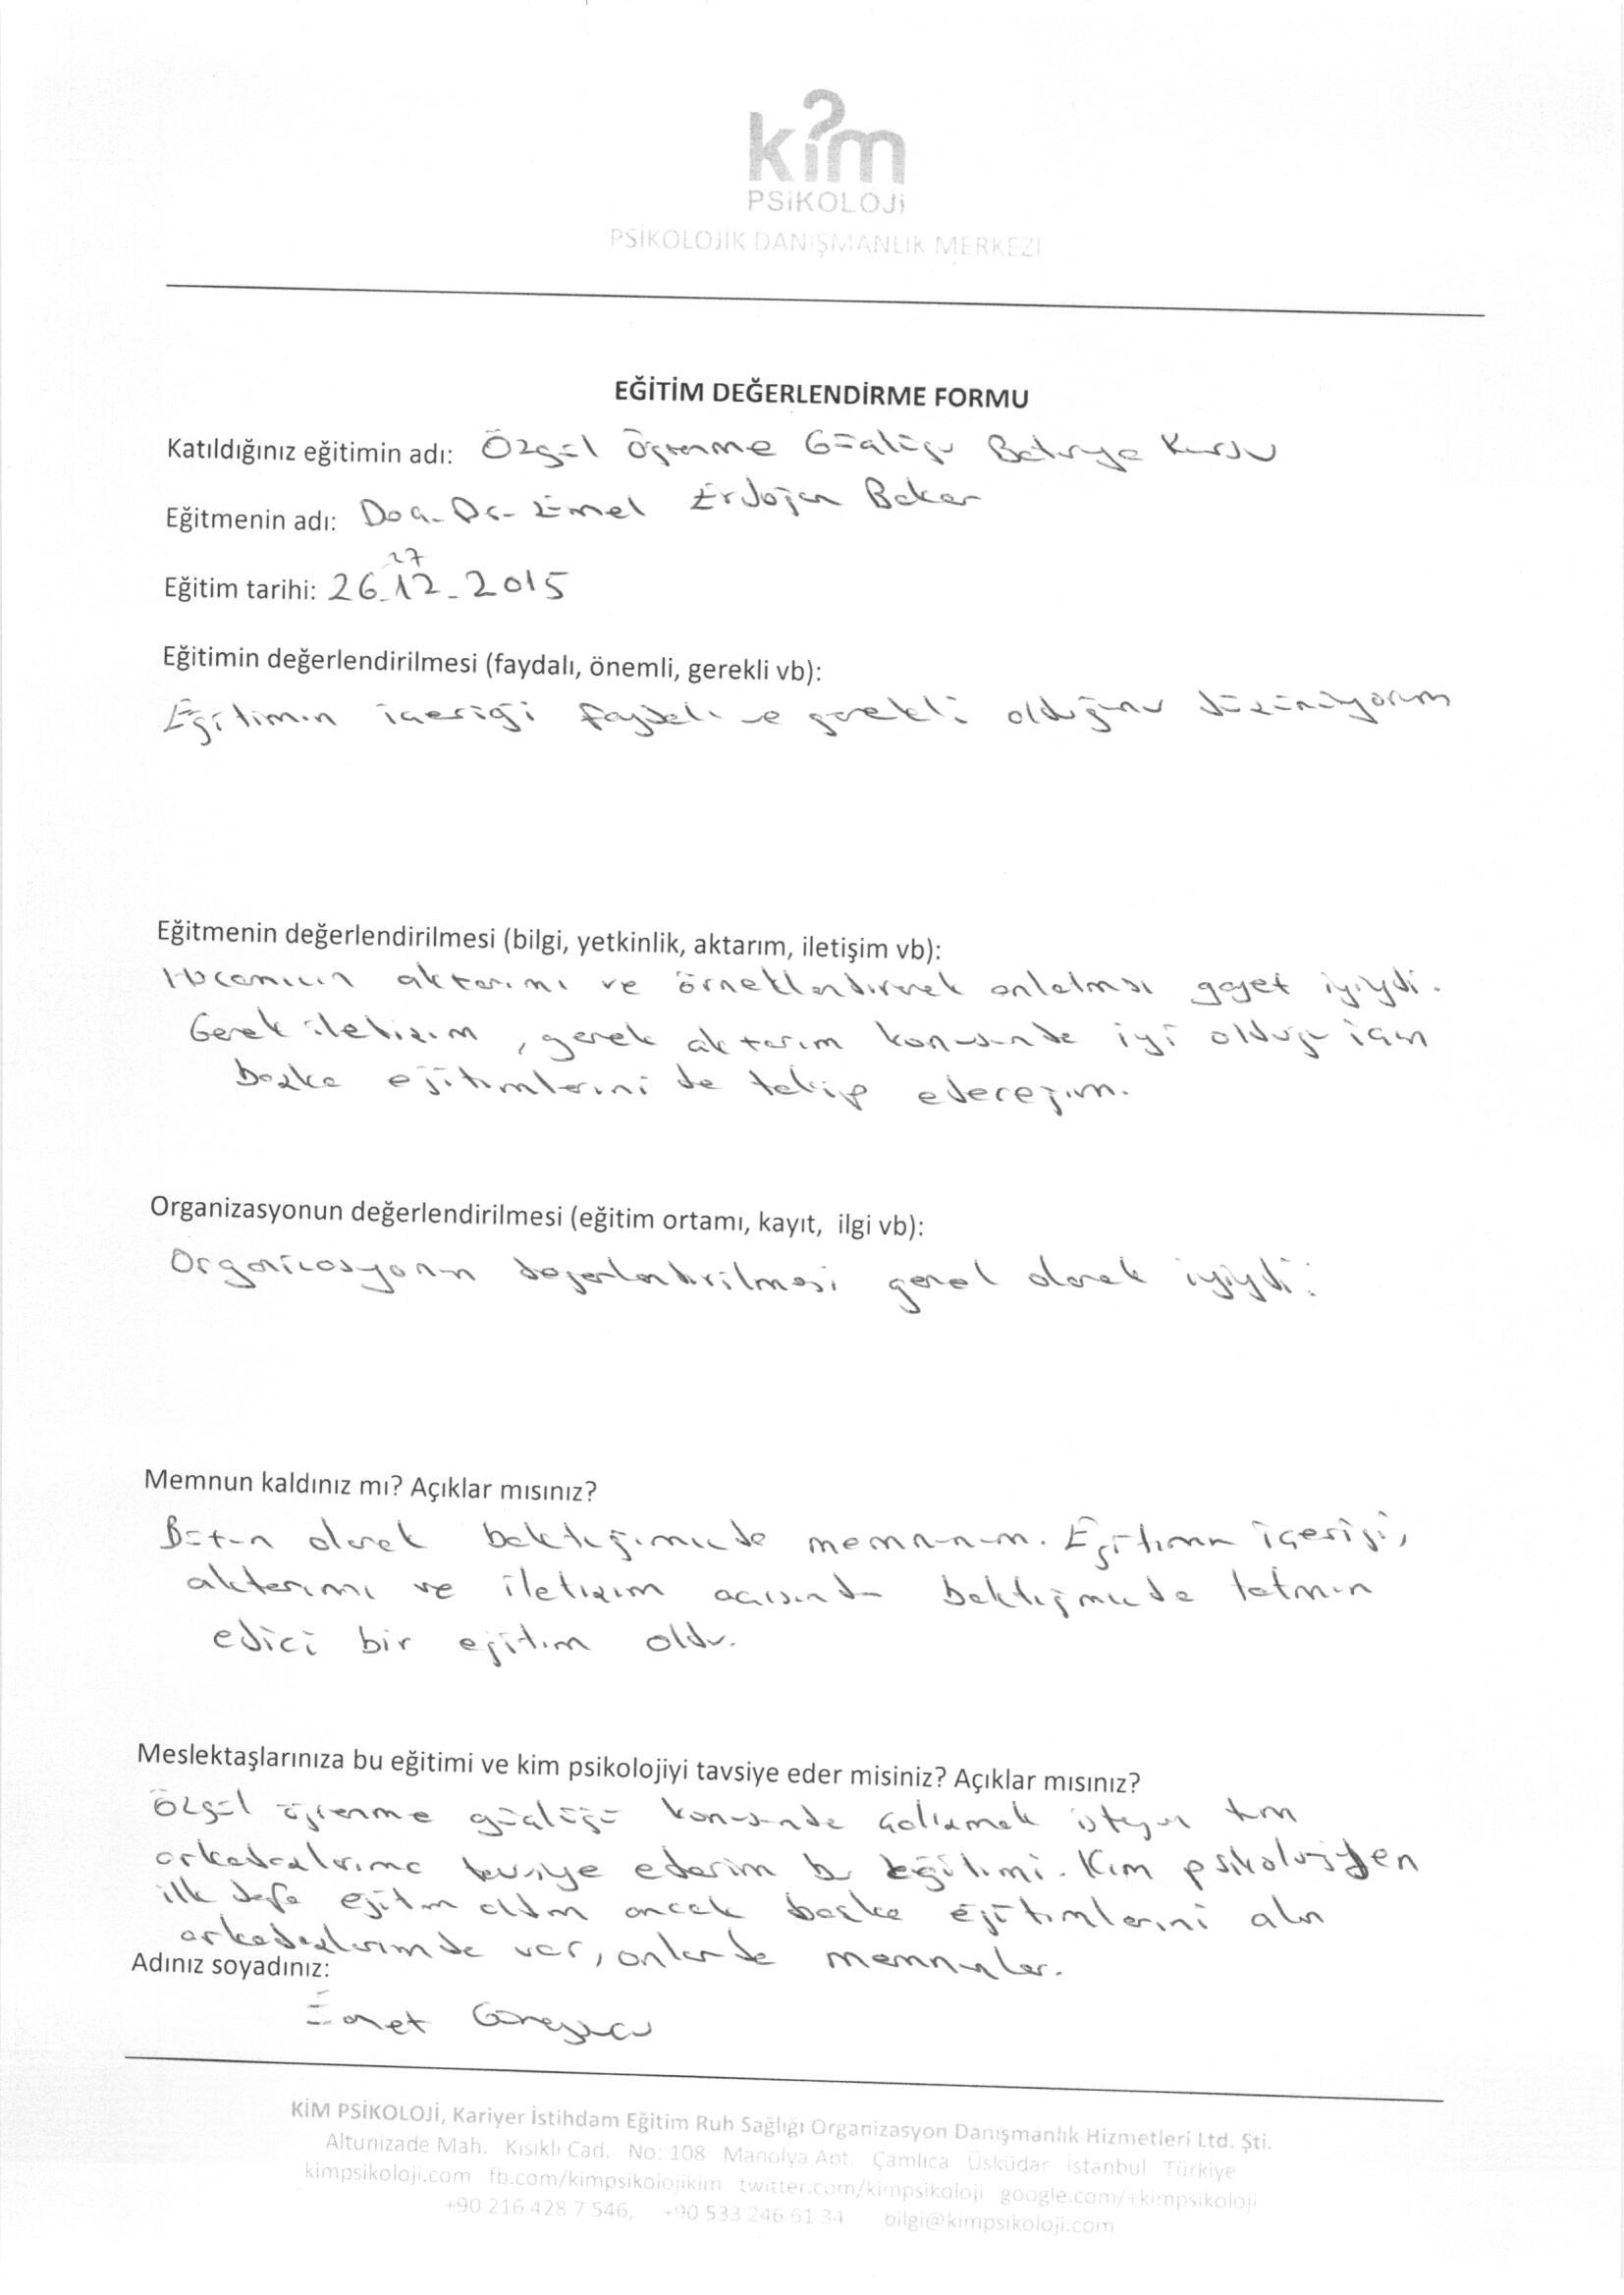 kim
PSiKOLOJi
PSİKOLOJİK DANIŞMANLIK MERKEZİ
EĞİTİM DEĞERLENDİRME FORMU
Katıldığınız eğitimin adı: Özgül Öğrenme Güçlüğü Batarya Kursu
Eğitmenin adı: Doç. Dr. Emel Erdoğan Bakar
27
Eğitim tarihi: 26.12.2015
Eğitimin değerlendirilmesi (faydalı, önemli, gerekli vb):
Eğitimin içeriği faydalı ve gerekli olduğunu düşünüyorum
Eğitmenin değerlendirilmesi (bilgi, yetkinlik, aktarım, iletişim vb):
Hocamızın aktarımı ve örneklendirerek anlatması gayet iyiydi.
Gerek iletişim, gerek aktarım konusunda iyi olduğu için
başka eğitimlerini de takip edeceğim.
Organizasyonun değerlendirilmesi (eğitim ortamı, kayıt, ilgi vb):
Organizasyonun değerlendirilmesi genel olarak iyiydi.
Memnun kaldınız mı? Açıklar mısınız?
Bütün olarak baktığımızda memnunum. Eğitimin içeriği,
aktarımı ve iletişim açısından baktığımızda tatmin
edici bir eğitim oldu.
Meslektaşlarınıza bu eğitimi ve kim psikolojiyi tavsiye eder misiniz? Açıklar mısınız?
Özgül öğrenme güçlüğü konusunda çalışmak isteyen tüm
arkadaşlarıma tavsiye ederim bu eğitimi. Kim psikolojiden
ilk defa eğitim aldım ancak başka eğitimlerini alan
arkadaşlarımda var, onlarda memnunlar.
Adınız soyadınız:
KİM PSİKOLOJİ, Kariyer İstihdam Eğitim Ruh Sağlığı Organizasyon Danışmanlık Hizmetleri Ltd. Şti.
Altunizade Mah. Kısıklı Cad. No: 108 Manolya Apt. Çamlıca Üsküdar İstanbul Türkiye
kimpsikoloji.com fb.com/kimpsikolojikim twitter.com/kimpsikoloji google.com/+kimpsikoloji
+90 216 428 7 546, +90 533 246 61 34 bilgi@kimpsikoloji.com